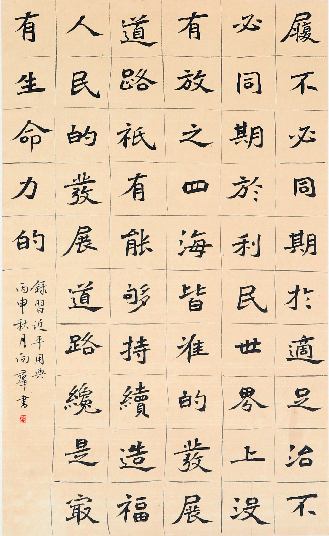 履不必同期於適足治不
必同期於利民世界上没
有放之四海皆准的發展
道路祇有能够持續造福
人民的發展道路纔是最
有生命力的
錄習近平用典
丙申秋月向羣書